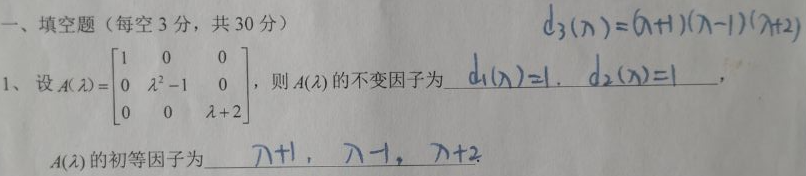 一、填空题（每空3分，共30分）
d₃(λ)=(λ+1)(λ-1)(λ+2)
1、设A(λ)=[1 0 0; 0 λ²-1 0; 0 0 λ+2]，则A(λ)的不变因子为 d₁(λ)=1. d₂(λ)=1 ，
A(λ)的初等因子为 λ+1，λ-1，λ+2.